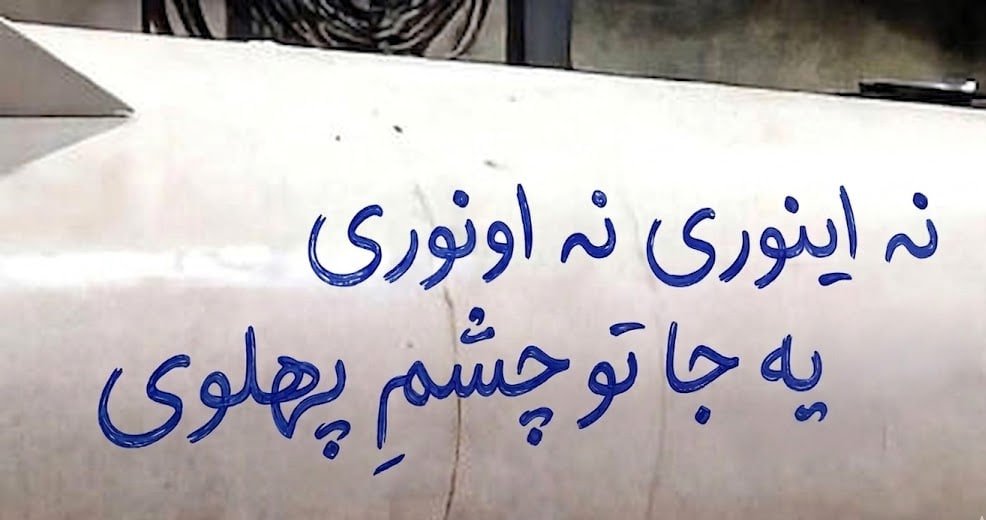 نه اینوری نه اونوری
یه جا تو چشمِ پهلوی